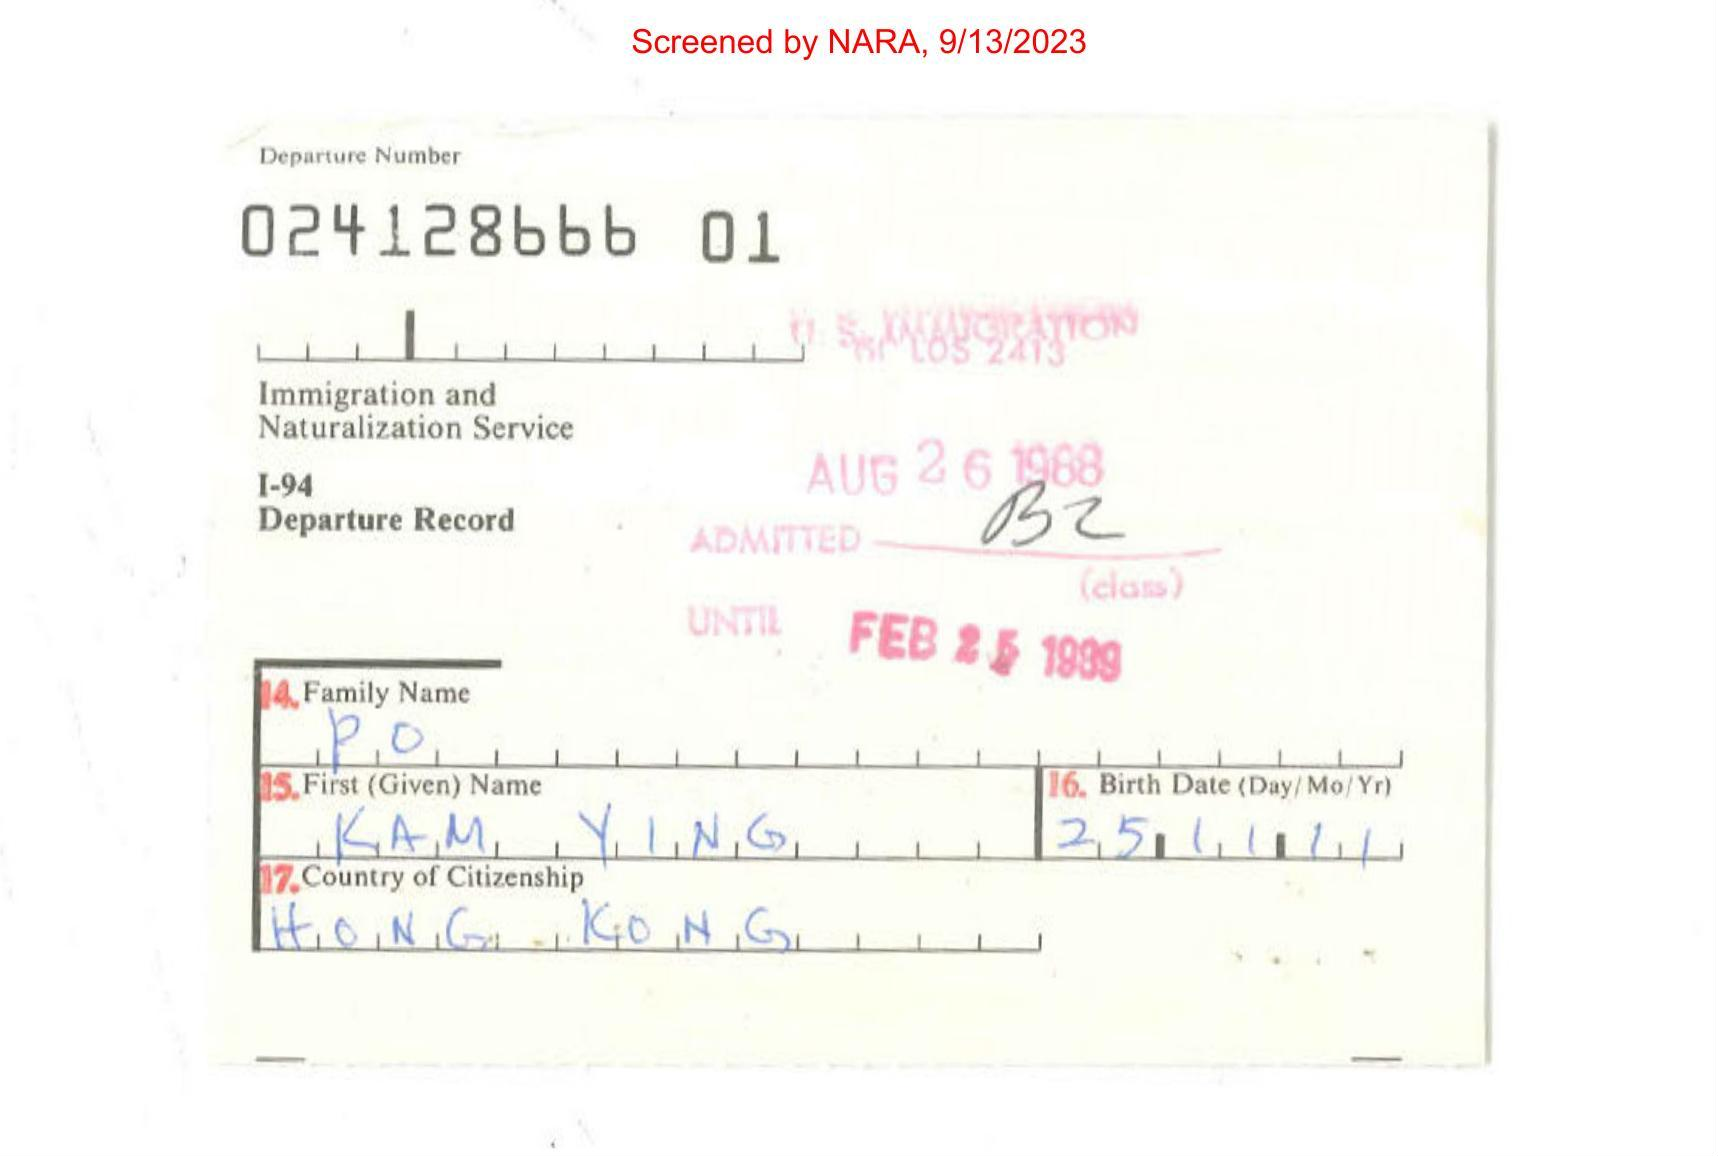 Screened by NARA, 9/13/2023
Departure Number
024128666 01
U. S. IMMIGRATION
LOS 2413
Immigration and
Naturalization Service
AUG 26 1988
I-94
Departure Record
ADMITTED B2
(class)
UNTIL FEB 25
14. Family Name
PO
15. First (Given) Name
16. Birth Date (Day/Mo/Yr)
KAM YING
25 11 11
17. Country of Citizenship
HONG KONG